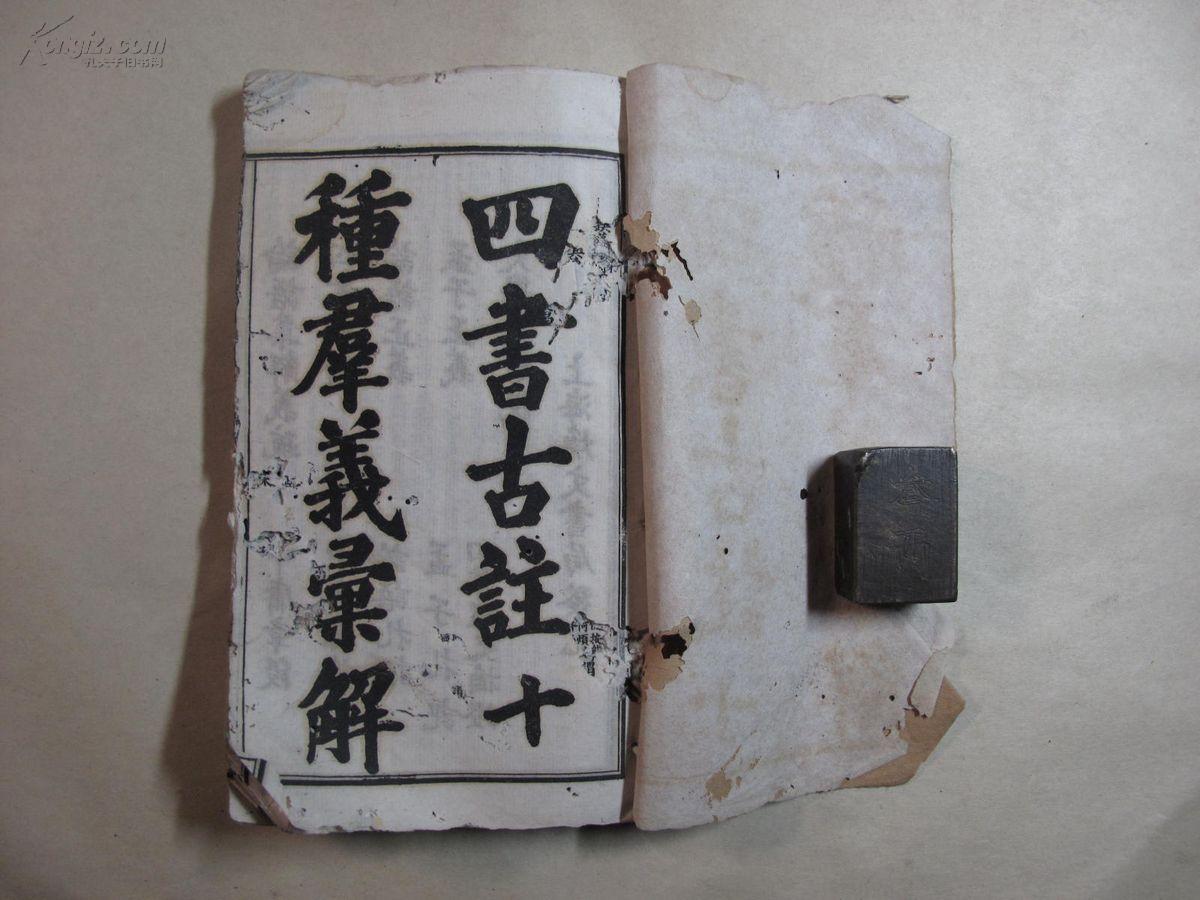 四書古註十
種羣義彙解
Kongfz.com
孔夫子旧书网